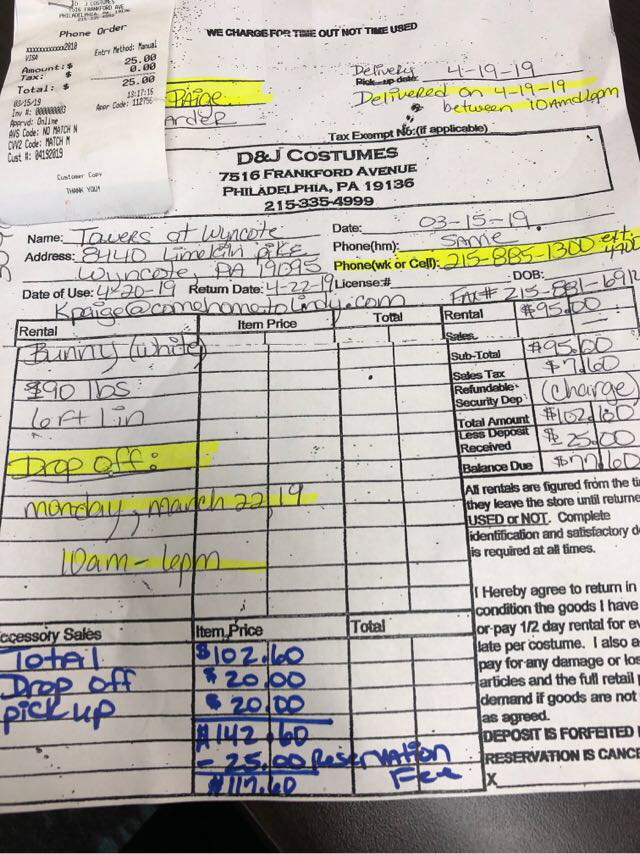 D J COSTUMES
7516 FRANKFORD AVE
PHILADELPHIA, PA 19136
215-335-4999
Phone Order
xxxxxxxxxxxx2810
VISA Entry Method: Manual
Amount: $ 25.00
Tax: $ 0.00
Total: $ 25.00
03/15/19 13:17:16
Inv #: 000000003 Appr Code: 112756
Apprvd: Online
AVS Code: NO MATCH N
CVV2 Code: MATCH M
Cust #: 04192019
Customer Copy
THANK YOU!
WE CHARGE FOR TIME OUT NOT TIME USED
Delivery
Pick-up date: 4-19-19
PAIGE
Delivered on 4-19-19
between 10Amd6pm
Tax Exempt No:(if applicable)
D&J COSTUMES
7516 FRANKFORD AVENUE
PHILADELPHIA, PA 19136
215-335-4999
Name: Towers of Wyncote Date: 03-15-19.
Address: 8440 Limekiln pike Phone(hm): same
Wyncote, PA 19095 Phone(wk or Cell): 215-885-1300 ext.
Date of Use: 4-20-19 Return Date: 4-22-19 License:# DOB:
Kpaige@comehometolindy.com Fax# 215-881-
Rental Item Price Total Rental $95.00
Sales —
Bunny (white) Sub-Total $95.00
Sales Tax $7.60
$90 lbs Refundable Security Dep: (charge)
6ft 1in Total Amount $102.60
Less Deposit Received $25.00
Drop off: Balance Due $77.60
monday, march 22, 19
10am - 6pm
All rentals are figured from the
they leave the store until returne
USED or NOT. Complete
identification and satisfactory
is required at all times.
I Hereby agree to return in
condition the goods I have
or pay 1/2 day rental for
late per costume. I also
pay for any damage or
articles and the full retail
demand if goods are not
as agreed.
DEPOSIT IS FORFEITED
RESERVATION IS CANCE
X
ccessory Sales Item Price Total
Total $102.60
Drop off $20.00
pick up $20.00
$142.60
- 25.00 Reservation Fee
$117.60